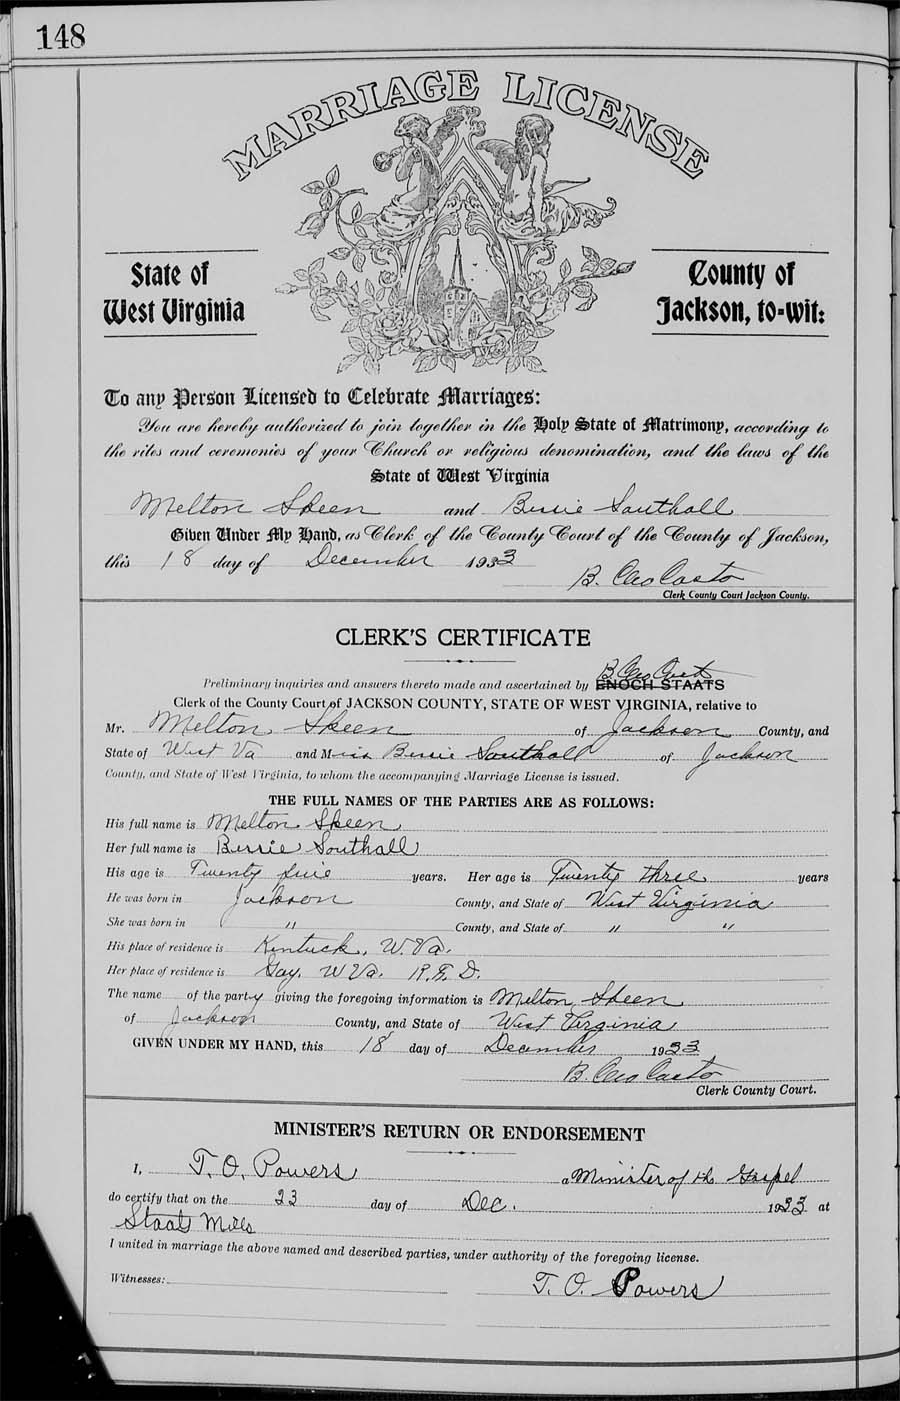 148
MARRIAGE LICENSE
State of
West Virginia
County of
Jackson, to-wit:
To any Person Licensed to Celebrate Marriages:
You are hereby authorized to join together in the Holy State of Matrimony, according to
the rites and ceremonies of your Church or religious denomination, and the laws of the
State of West Virginia
Melton Skeen and Bessie Southall
Given Under My Hand, as Clerk of the County Court of the County of Jackson,
this 18 day of December 1933
B. Geo Casto
Clerk County Court Jackson County.
CLERK'S CERTIFICATE
B. Geo Casto
Preliminary inquiries and answers thereto made and ascertained by ENOCH STAATS
Clerk of the County Court of JACKSON COUNTY, STATE OF WEST VIRGINIA, relative to
Mr. Melton Skeen of Jackson County, and
State of West Va and Miss Bessie Southall of Jackson
County, and State of West Virginia, to whom the accompanying Marriage License is issued.
THE FULL NAMES OF THE PARTIES ARE AS FOLLOWS:
His full name is Melton Skeen
Her full name is Bessie Southall
His age is Twenty five years. Her age is Twenty three years
He was born in Jackson County, and State of West Virginia
She was born in " County, and State of " "
His place of residence is Kentuck, W. Va.
Her place of residence is Gay, W Va. R. F. D.
The name of the party giving the foregoing information is Melton Skeen
of Jackson County, and State of West Virginia
GIVEN UNDER MY HAND, this 18 day of December 1933
B. Geo Casto
Clerk County Court.
MINISTER'S RETURN OR ENDORSEMENT
I, T. O. Powers a Minister of the Gospel
do certify that on the 23 day of Dec. 1933 at
Staats Mills
I united in marriage the above named and described parties, under authority of the foregoing license.
Witnesses: T. O. Powers